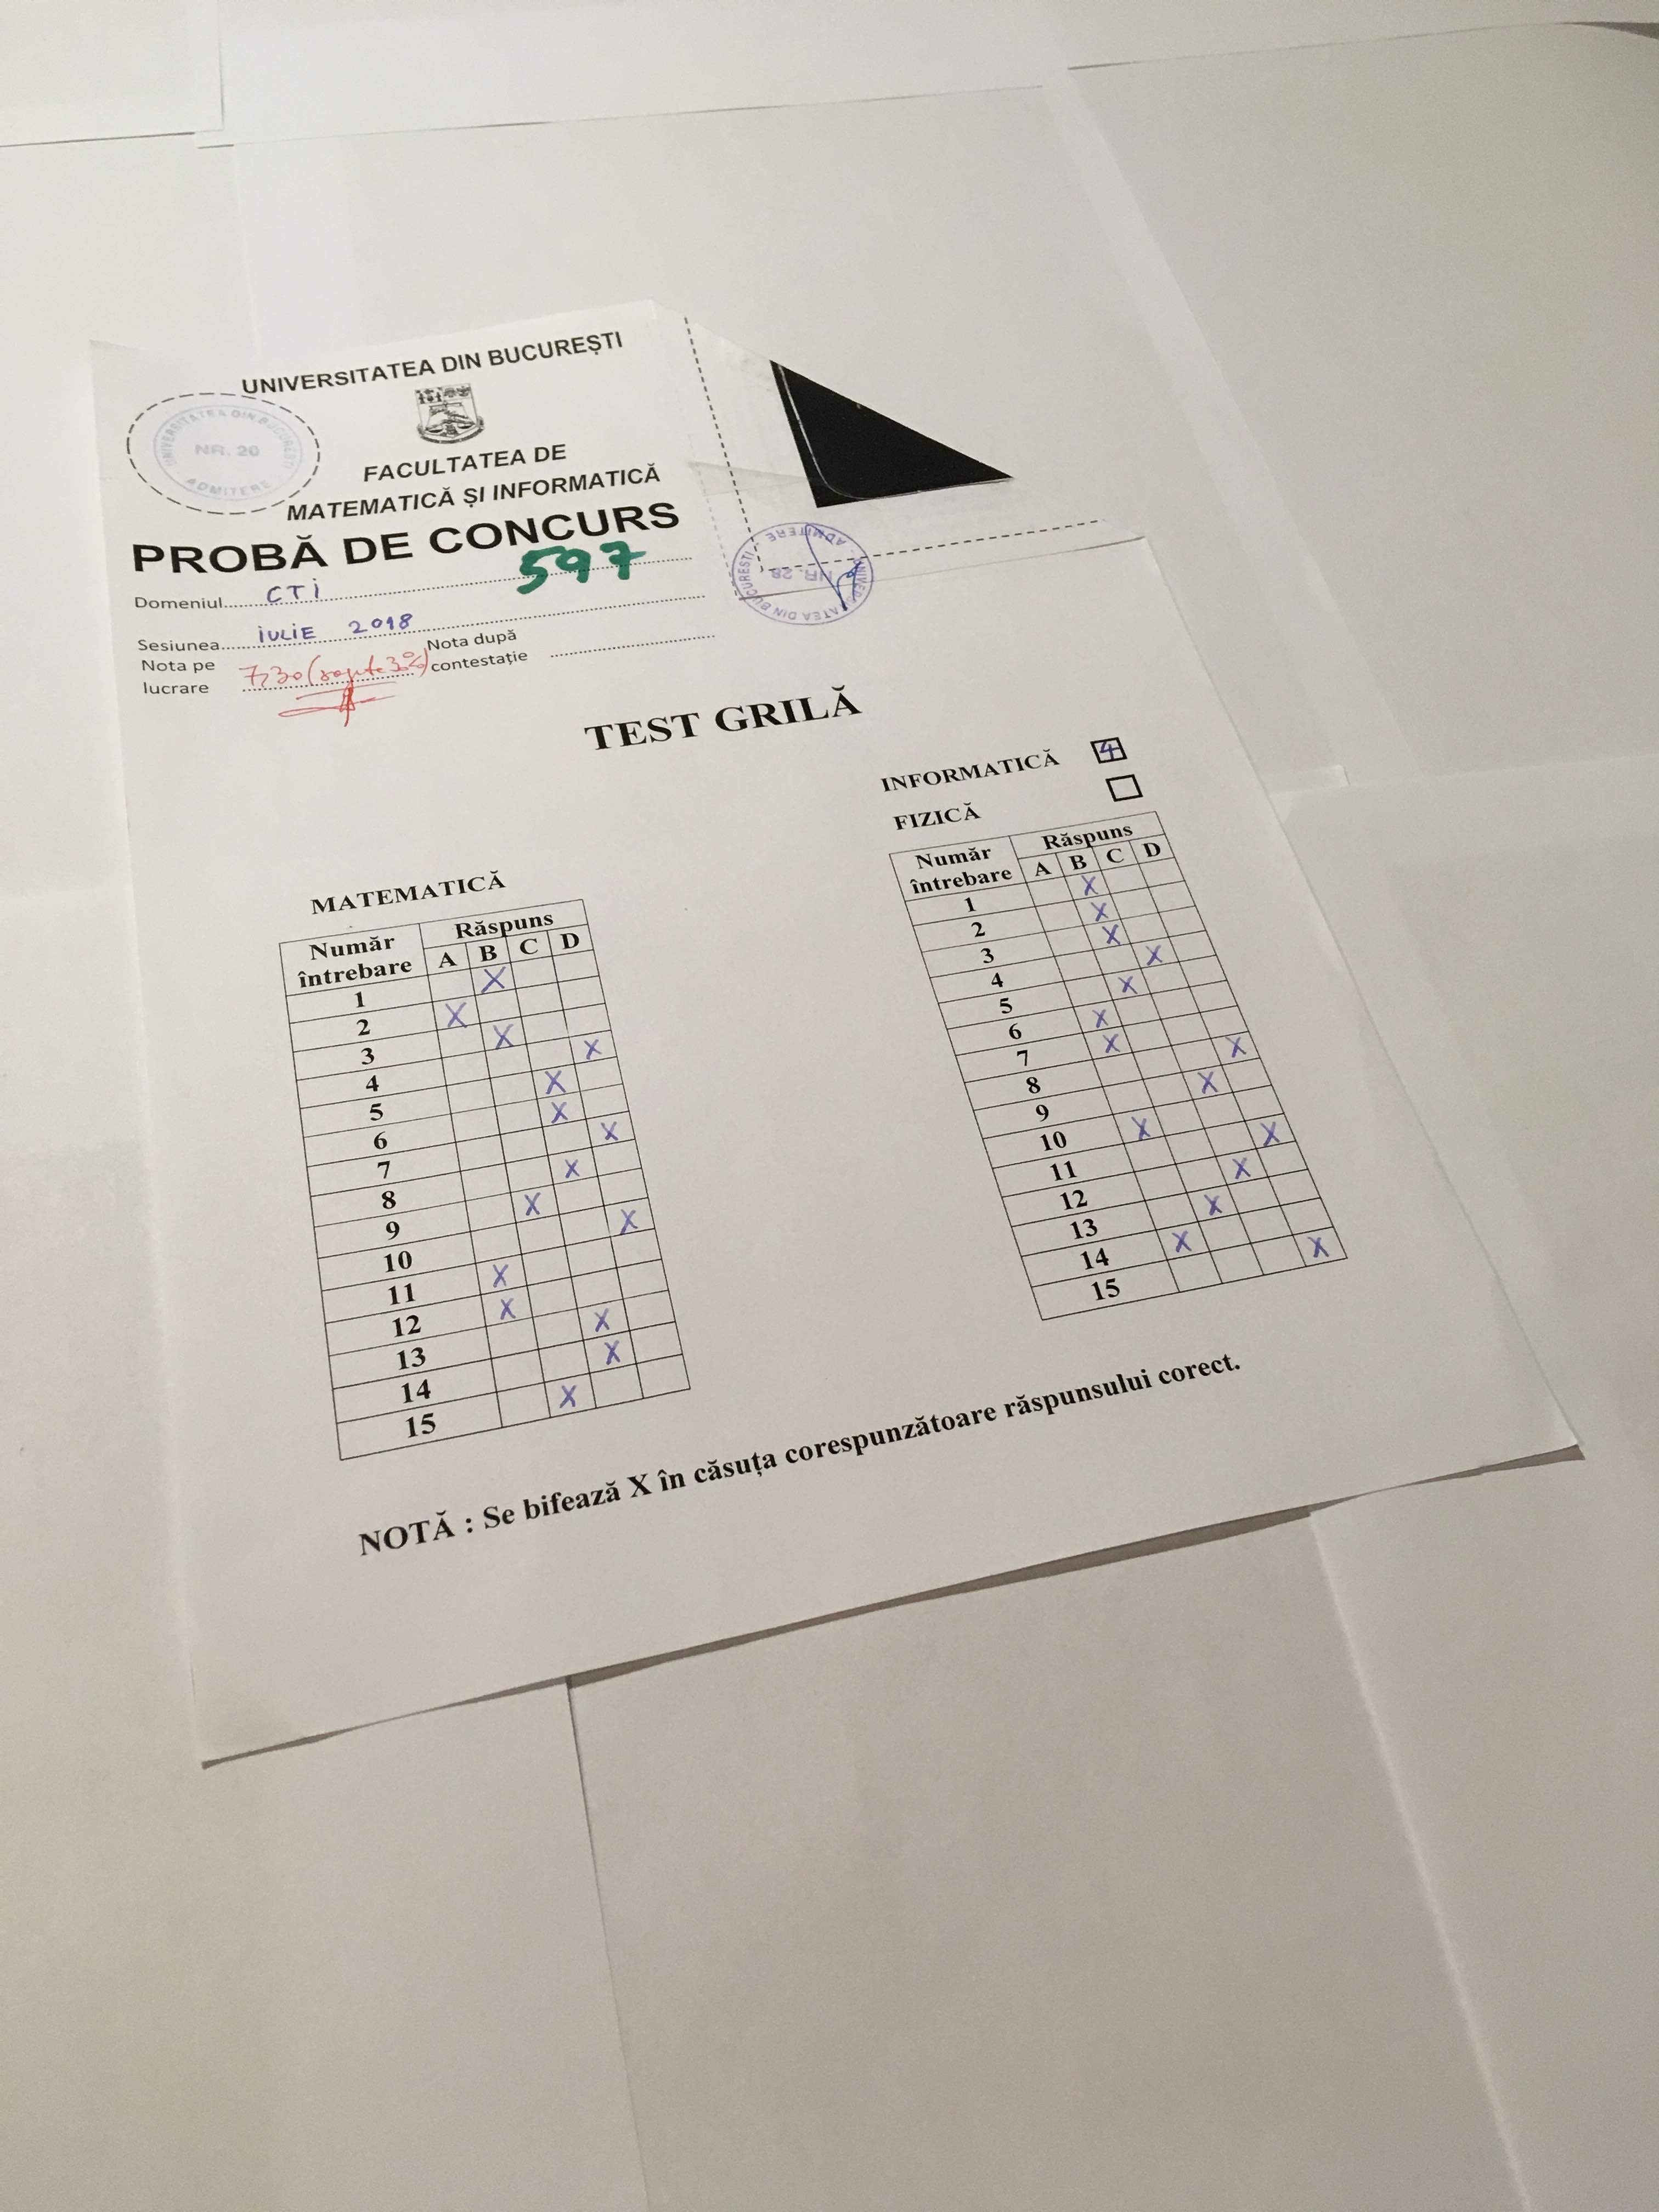 UNIVERSITATEA DIN BUCUREȘTI
UNIVERSITATEA DIN BUCUREȘTI
NR. 20
ADMITERE
FACULTATEA DE
MATEMATICĂ ȘI INFORMATICĂ
PROBĂ DE CONCURS
597
Domeniul CTI
Sesiunea IULIE 2018
Nota pe lucrare 7,30 (șapte 30%)
Nota după contestație
UNIVERSITATEA DIN BUCUREȘTI
NR. 28
ADMITERE
TEST GRILĂ
INFORMATICĂ 4
FIZICĂ
MATEMATICĂ
Număr întrebare Răspuns
A B C D
1 X
2 X
3 X
4 X
5 X
6 X
7 X
8 X
9 X
10 X
11 X
12 X
13 X
14 X
15 X
Număr întrebare Răspuns
A B C D
1 X
2 X
3 X
4 X
5 X
6 X
7 X
8 X
9 X
10 X
11 X
12 X
13 X
14 X
15 X
NOTĂ : Se bifează X în căsuța corespunzătoare răspunsului corect.